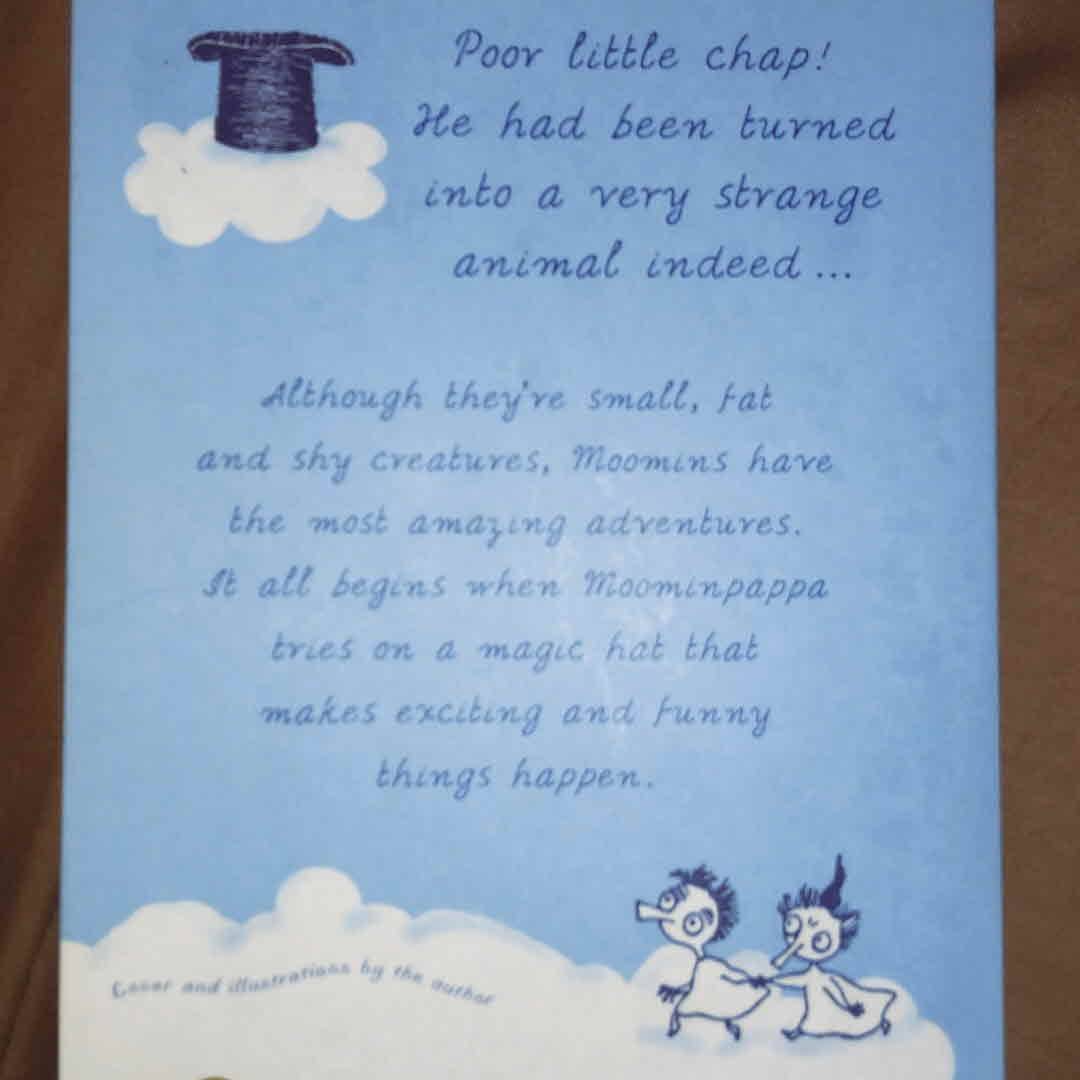 Poor little chap!
He had been turned
into a very strange
animal indeed ...
Although they're small, fat
and shy creatures, Moomins have
the most amazing adventures.
It all begins when Moominpappa
tries on a magic hat that
makes exciting and funny
things happen.
Cover and illustrations by the author